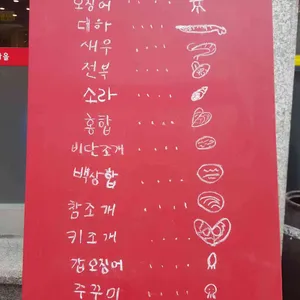 오징어 ....
대하 ....
새우 ....
전복 ....
소라 ....
홍합 ....
비단조개 ....
백상합 ....
참조개 ....
키조개 ....
갑오징어 ....
주꾸미 ....